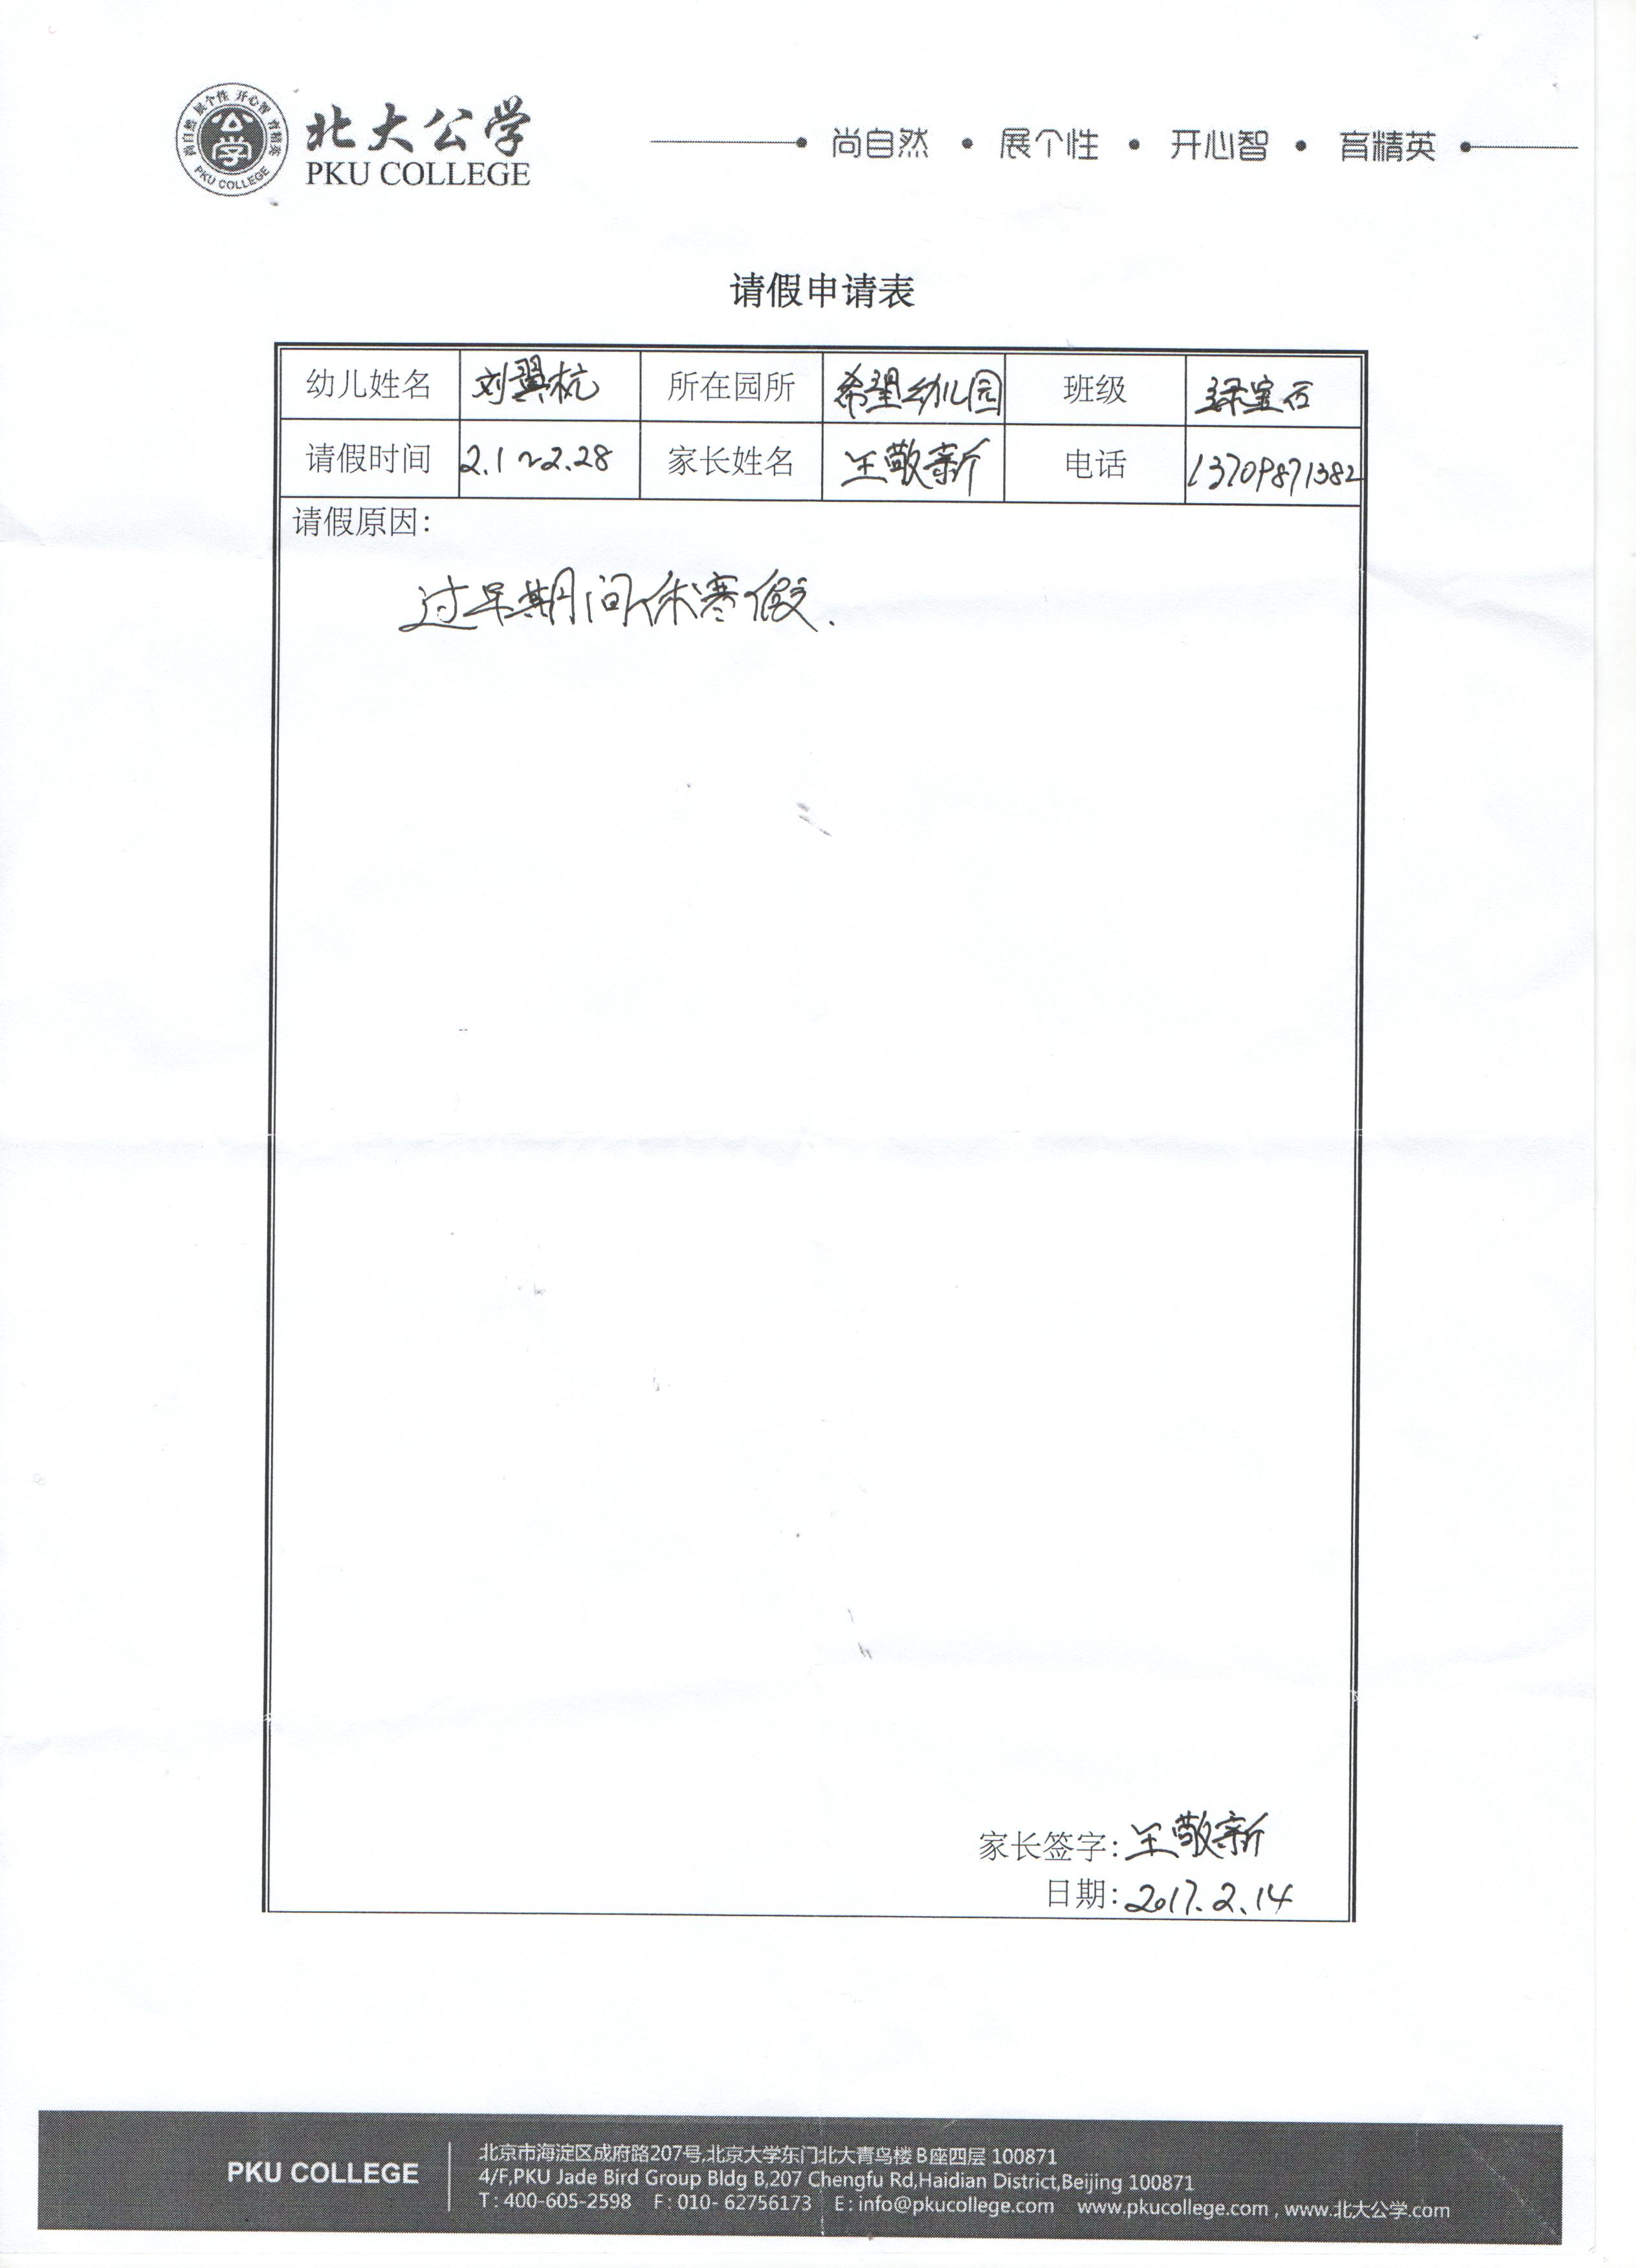 尚自然 展个性 开心智 育精英
PKU COLLEGE
北大公学
PKU COLLEGE
尚自然 • 展个性 • 开心智 • 育精英
请假申请表
幼儿姓名 刘翼杭 所在园所 希望幼儿园 班级 绿宝石
请假时间 2.1~2.28 家长姓名 王敬新 电话 13709871382
请假原因：
过年期间休寒假.
家长签字：王敬新
日期：2017.2.14
PKU COLLEGE
北京市海淀区成府路207号,北京大学东门北大青鸟楼B座四层 100871
4/F,PKU Jade Bird Group Bldg B,207 Chengfu Rd,Haidian District,Beijing 100871
T : 400-605-2598 F : 010- 62756173 E : info@pkucollege.com www.pkucollege.com , www.北大公学.com